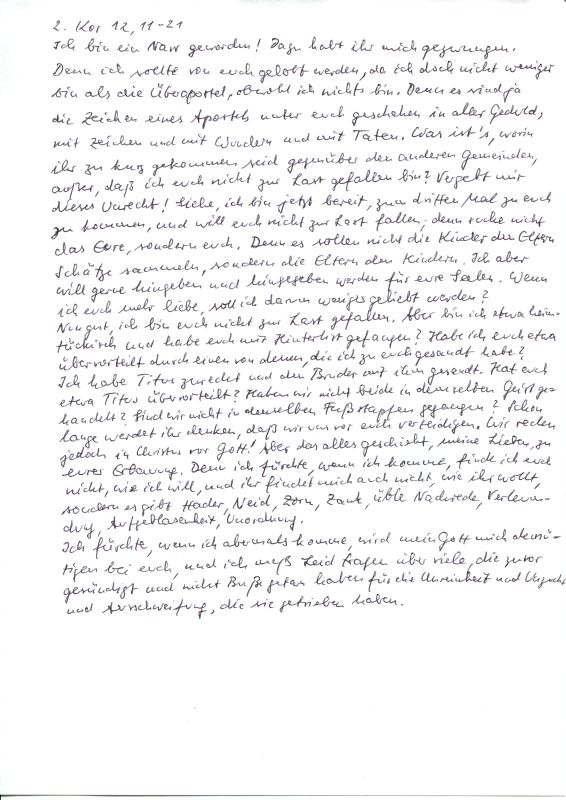 2. Kor 12, 11-21
Ich bin ein Narr geworden! Dazu habt ihr mich gezwungen.
Denn ich sollte von euch gelobt werden, da ich doch nicht weniger
bin als die Überapostel, obwohl ich nichts bin. Denn es sind ja
die Zeichen eines Apostels unter euch geschehen in aller Geduld,
mit Zeichen und mit Wundern und mit Taten. Was ist's, worin
ihr zu kurz gekommen seid gegenüber den anderen Gemeinden,
außer, daß ich euch nicht zur Last gefallen bin? Vergebt mir
dieses Unrecht! Siehe, ich bin jetzt bereit, zum dritten Mal zu euch
zu kommen, und will euch nicht zur Last fallen; denn suche nicht
das Eure, sondern euch. Denn es sollen nicht die Kinder den Eltern
Schätze sammeln, sondern die Eltern den Kindern. Ich aber
will gerne hingeben und hingegeben werden für eure Seelen. Wenn
ich euch mehr liebe, soll ich darum weniger geliebt werden?
Nun gut, ich bin euch nicht zur Last gefallen. Aber bin ich etwa heim-
tückisch und habe euch mit Hinterlist gefangen? Habe ich euch etwa
übervorteilt durch einen von denen, die ich zu euch gesandt habe?
Ich habe Titus zuredet und den Bruder mit ihm gesandt. Hat euch
etwa Titus übervorteilt? Haben wir nicht beide in demselben Geist ge-
handelt? Sind wir nicht in denselben Fußstapfen gegangen? Schon
lange werdet ihr denken, daß wir uns vor euch verteidigen. Wir reden
jedoch in Christus vor Gott! Aber das alles geschieht, meine Lieben, zu
eurer Erbauung. Denn ich fürchte, wenn ich komme, finde ich euch
nicht, wie ich will, und ihr findet mich auch nicht, wie ihr wollt,
sondern es gibt Hader, Neid, Zorn, Zank, üble Nachrede, Verleum-
dung, Aufgeblasenheit, Unordnung.
Ich fürchte, wenn ich abermals komme, wird mein Gott mich demü-
tigen bei euch, und ich muß Leid tragen über viele, die zuvor
gesündigt und nicht Buße getan haben für die Unreinheit und Unzucht
und Ausschweifung, die sie getrieben haben.